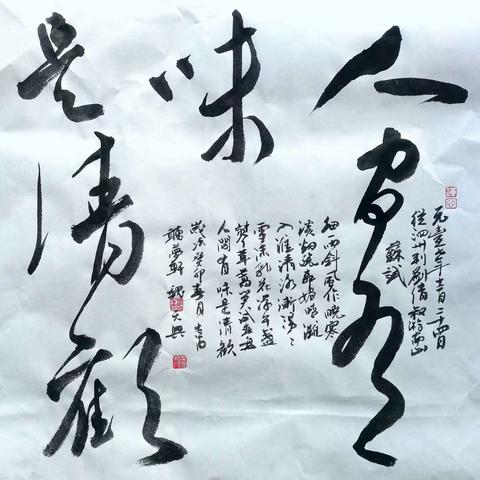 人間有
味
是清歡
元豐七年十二月二十四日
從泗州劉倩叔游南山
蘇軾
細雨斜風作曉寒
淡煙疏柳媚晴灘
入淮清洛漸漫々
雪沫乳花浮午盞
蓼茸蒿筍試春盤
人間有味是清歡
歲次癸卯春月
聽夢軒